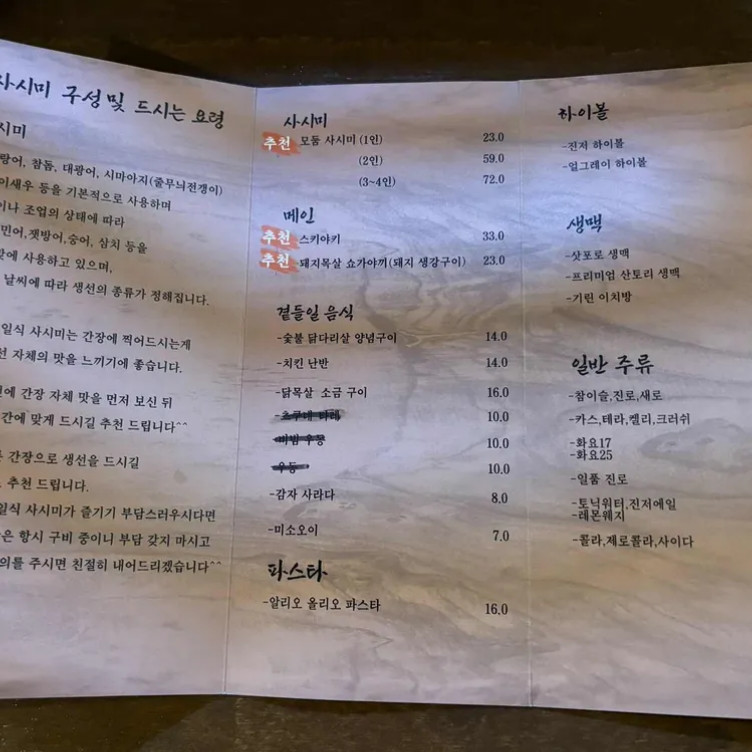 사시미 구성 및 드시는 요령
시미
참돔, 대광어, 시마아지(줄무늬전갱이)
이새우 등을 기본적으로 사용하며
이나 조업의 상태에 따라
민어,잿방어,숭어, 삼치 등을
에 사용하고 있으며,
날씨에 따라 생선의 종류가 정해집니다.
일식 사시미는 간장에 찍어드시는게
선 자체의 맛을 느끼기에 좋습니다.
에 간장 자체 맛을 먼저 보신 뒤
간에 맞게 드시길 추천 드립니다^^
간장으로 생선을 드시길
추천 드립니다.
일식 사시미가 즐기기 부담스러우시다면
은 항시 구비 중이니 부담 갖지 마시고
의를 주시면 친절히 내어드리겠습니다^^
사시미
추천 모둠 사시미 (1인) 23.0
(2인) 59.0
(3~4인) 72.0
메인
추천 스키야키 33.0
추천 돼지목살 쇼가야끼(돼지 생강구이) 23.0
곁들일 음식
-숯불 닭다리살 양념구이 14.0
-치킨 난반 14.0
-닭목살 소금 구이 16.0
10.0
-비빔 우동 10.0
우동 10.0
-감자 사라다 8.0
-미소오이 7.0
파스타
-알리오 올리오 파스타 16.0
하이볼
-진저 하이볼
-얼그레이 하이볼
생맥
-삿포로 생맥
-프리미엄 산토리 생맥
-기린 이치방
일반 주류
-참이슬,진로,새로
-카스,테라,켈리,크러쉬
-화요17
-화요25
-일품 진로
-토닉워터,진저에일
-레몬웨지
-콜라,제로콜라,사이다